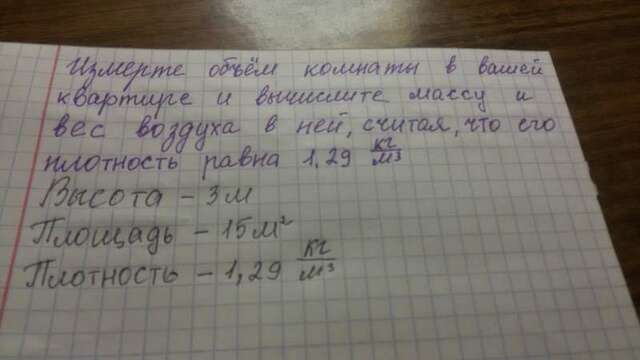 Измерте объём комнаты в вашей
квартире и вычислите массу и
вес воздуха в ней, считая, что его
плотность равна 1,29 кг/м³
Высота – 3м
Площадь – 15м²
Плотность – 1,29 кг/м³